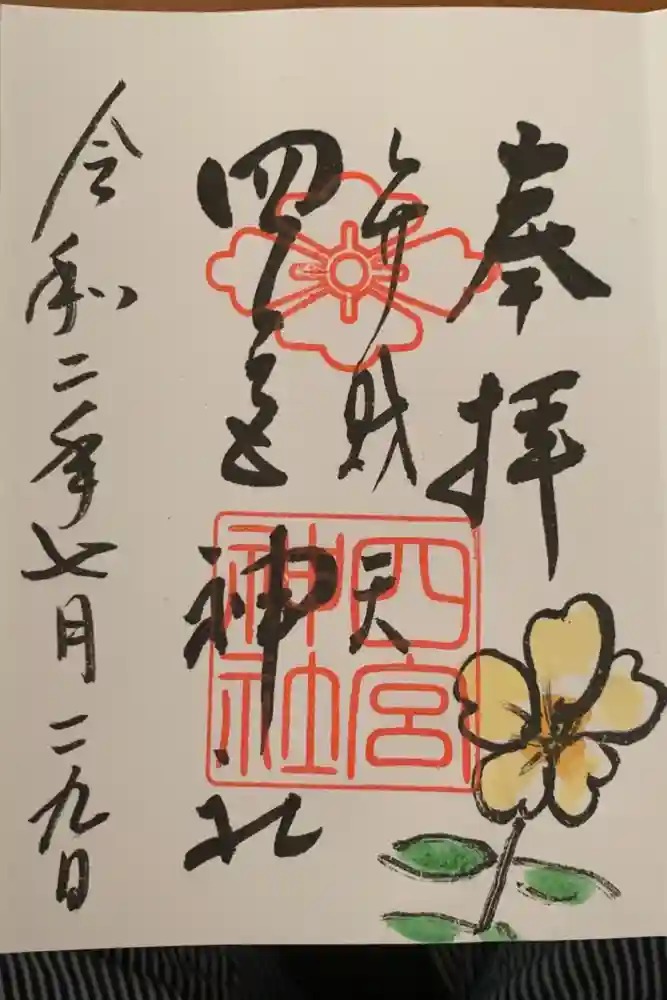 奉拝
弁財天
四宮神社
四宮神社
令和二年七月二九日